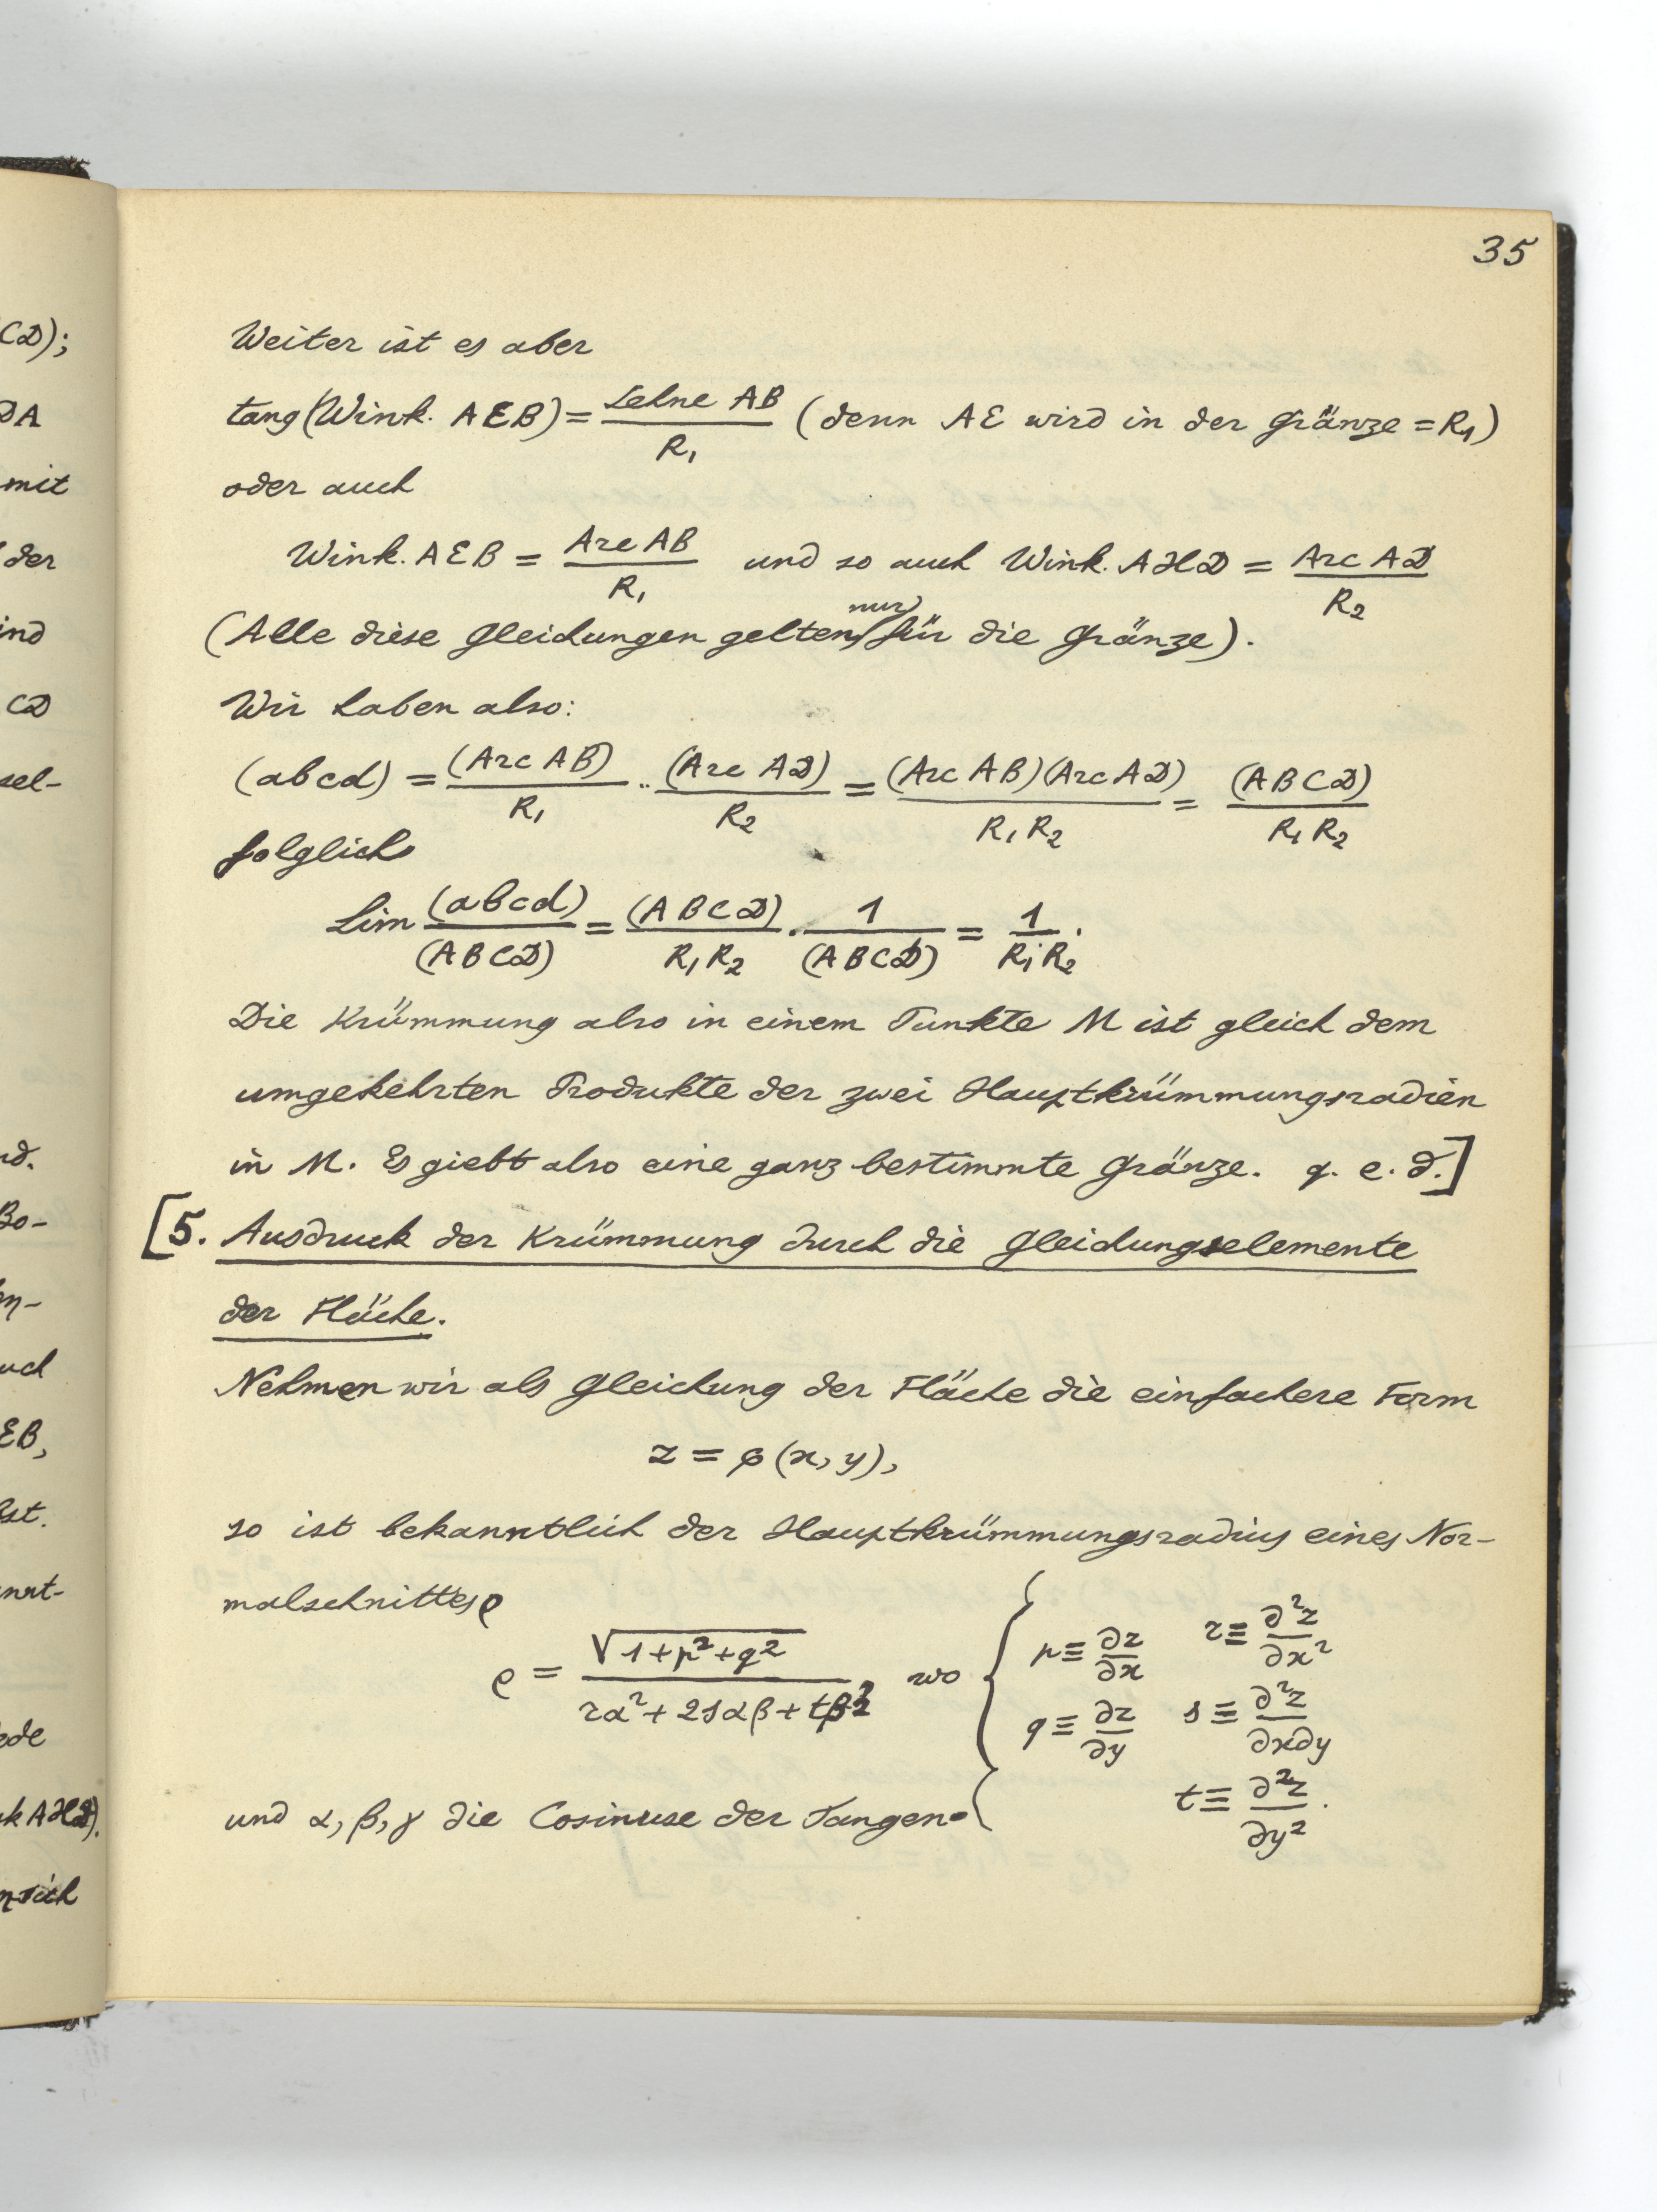 35
Weiter ist es aber
tang(Wink. AEB) = Sehne AB / R₁ (denn AE wird in der Gränze = R₁)
oder auch
Wink. AEB = Arc AB / R₁ und so auch Wink. AHD = Arc AD / R₂
(Alle diese Gleichungen gelten nur für die Gränze).
Wir haben also:
(abcd) = (Arc AB) / R₁ · (Arc AD) / R₂ = (Arc AB)(Arc AD) / R₁ R₂ = (ABCD) / R₁ R₂
folglich
Lim (abcd) / (ABCD) = (ABCD) / R₁ R₂ · 1 / (ABCD) = 1 / R₁ R₂.
Die Krümmung also in einem Punkte M ist gleich dem
umgekehrten Produkte der zwei Hauptkrümmungsradien
in M. Es giebt also eine ganz bestimmte Gränze. q. e. d.]
[5. Ausdruck der Krümmung durch die Gleichungselemente
der Fläche.
Nehmen wir als Gleichung der Fläche die einfachere Form
z = φ(x, y),
so ist bekanntlich der Hauptkrümmungsradius eines Nor-
malschnittes ρ
ρ = √(1+p²+q²) / (rα² + 2sαβ + tβ²), wo { p ≡ ∂z/∂x r ≡ ∂²z/∂x²
q ≡ ∂z/∂y s ≡ ∂²z/∂x∂y
t ≡ ∂²z/∂y².
und α, β, γ die Cosinuse der Tangen-
CD);
DA
mit
der
ind
CD
sel-
nd.
Bo-
en-
uch
EB,
ist.
nnt-
ede
nk AHD).
sich